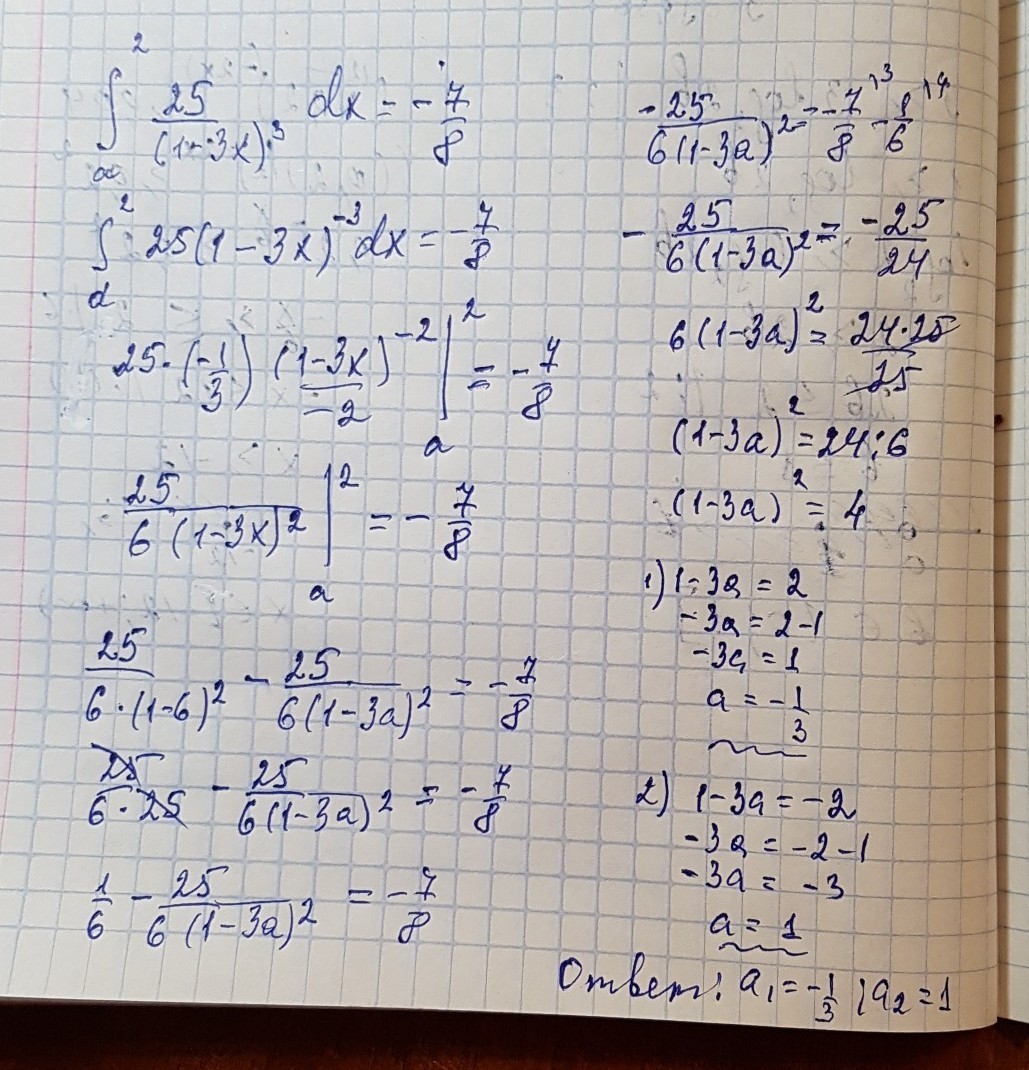 ∫₂ᵃ 25/(1-3x)³ dx = -7/8
∫ᵈ² 25(1-3x)⁻³dx = -7/8
25·(-1/3) (1-3x)⁻²/-2 |ₐ² = -7/8
25/6(1-3x)² |ₐ² = -7/8
25/6·(1-6)² - 25/6(1-3a)² = -7/8
25/6·25 - 25/6(1-3a)² = -7/8
1/6 - 25/6(1-3a)² = -7/8
-25/6(1-3a)² = -7/8 \3 - 1/6 \4
-25/6(1-3a)² = -25/24
6(1-3a)² = 24·25/25
(1-3a)² = 24:6
(1-3a)² = 4
1) 1-3a = 2
-3a = 2-1
-3a = 1
a = -1/3
2) 1-3a = -2
-3a = -2-1
-3a = -3
a = 1
Ответ: a₁ = -1/3; a₂ = 1